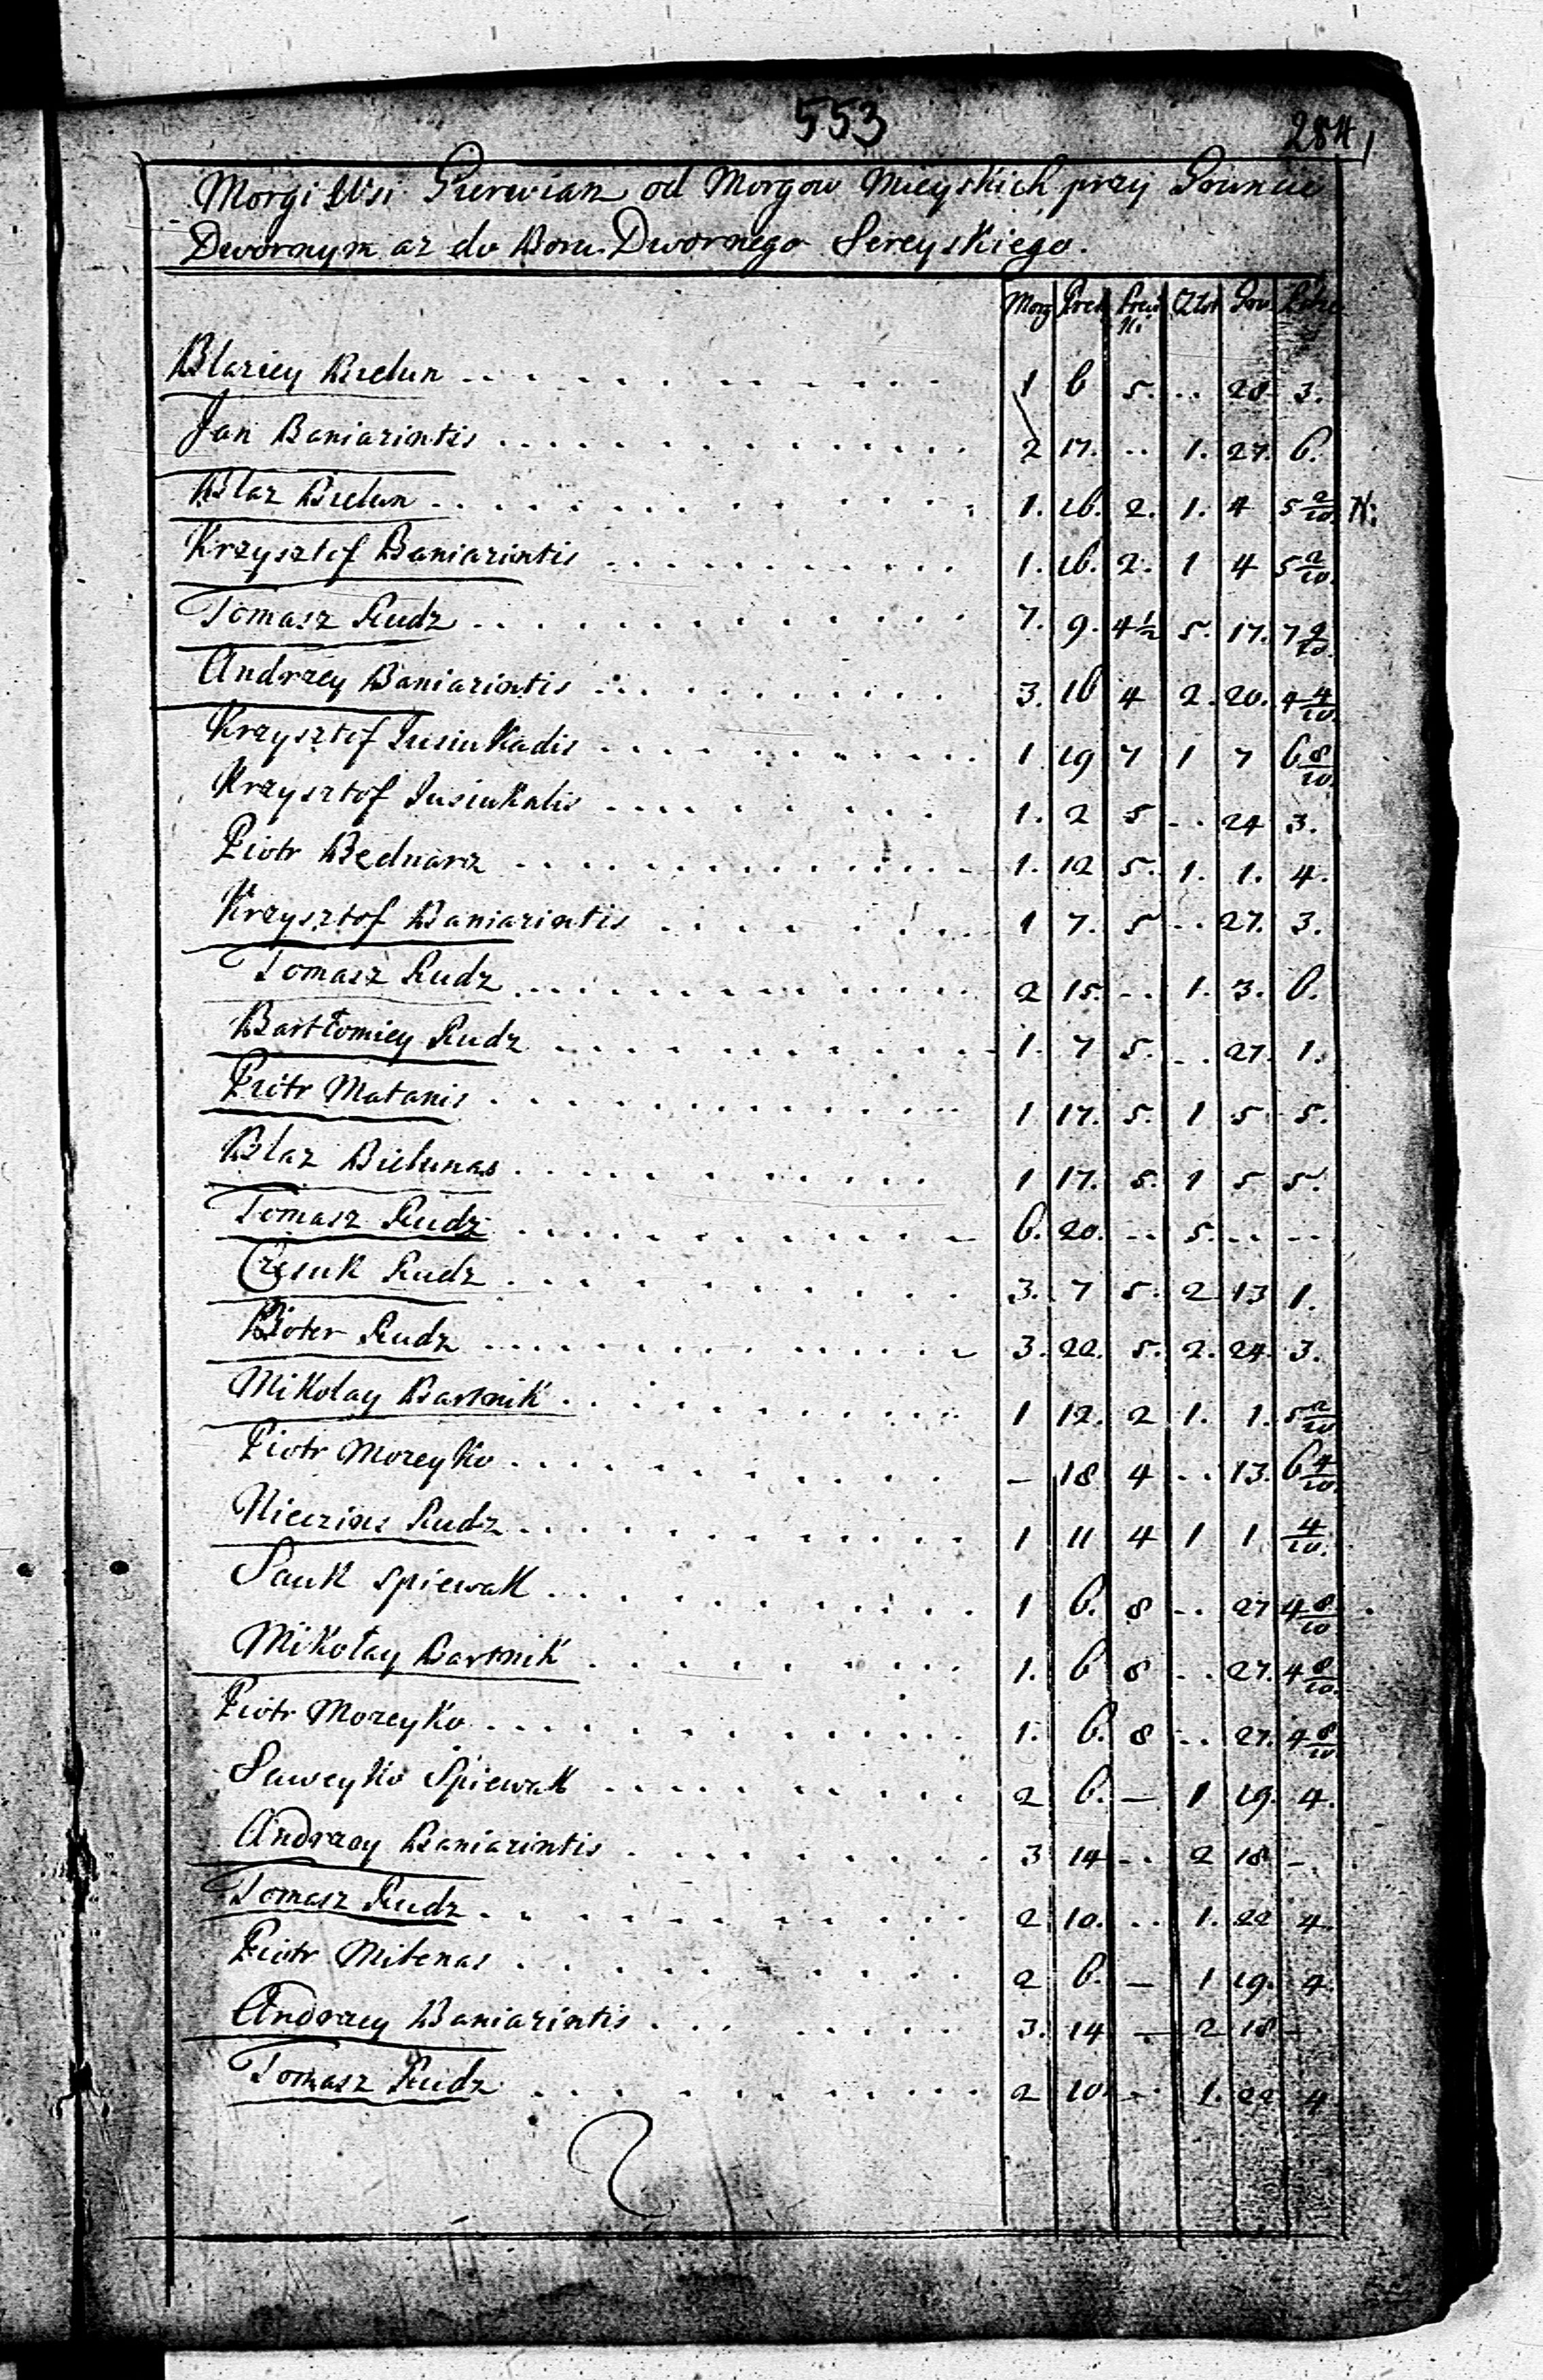 553
284
Morgi Wsi Gierwian od Morgow Mieyskich przy Gruncie
Dwornym az do Boru Dwornego Sereyskiego.
Morg Pręt Pręci Ki Złot Gro
Blariey Bielun 1 6 5. .. 28 3.
Jan Baniazintis 2 17. .. 1. 27. 6.
Blaz Bielun 1. 16. 2. 1. 4 5 2/10. N:
Krzysztof Baniazintis 1. 16. 2. 1 4 5 2/10.
Tomasz Rudz 7. 9. 4 1/2 5. 17. 7 2/10.
Andrzey Baniazintis 3. 16 4 2. 20. 4 4/10.
Krzysztof Jusiukadis 1 19 7 1 7 6 8/10.
Krzysztof Jusiukalis 1. 2 5 .. 24 3.
Piotr Bednarz 1. 12 5. 1. 1. 4.
Krzysztof Baniazintis 1 7. 5 .. 27. 3.
Tomasz Rudz 2 15. .. 1. 3. 6.
Bartłomiey Rudz 1. 7 5. .. 27. 1.
Piotr Matanis 1 17. 5. 1 5 5.
Blaz Bielunas 1 17. 5. 1 5 5.
Tomasz Rudz 6. 20. .. 5. .. ..
Czesuk Rudz 3. 7 5. 2 13 1.
Pioter Rudz 3. 22. 5. 2. 24. 3.
Mikolay Bartnik 1 12. 2 1. 1. 5 2/10
Piotr Mozeyko – 18 4 .. 13. 6 4/10.
Rudz 1 11 4 1 1 4/10.
Sauk spiewak 1 6. 8 .. 27 4 8/10
Mikołay Bartnik 1. 6 8 .. 27. 4 8/10.
Piotr Mozeyko 1. 6. 8 .. 27. 4 8/10
Saweyko Spiewak 2 6. — 1 19. 4.
Andrzey Baniazintis 3 14 .. 2 18 –.
Tomasz Rudz 2 10. .. 1. 22 4.
Piotr Mitenas 2 6. — 1 19. 4.
Andrzey Baniazintis 3. 14 — 2 18 –.
Tomasz Rudz 2 10. .. 1. 22 4